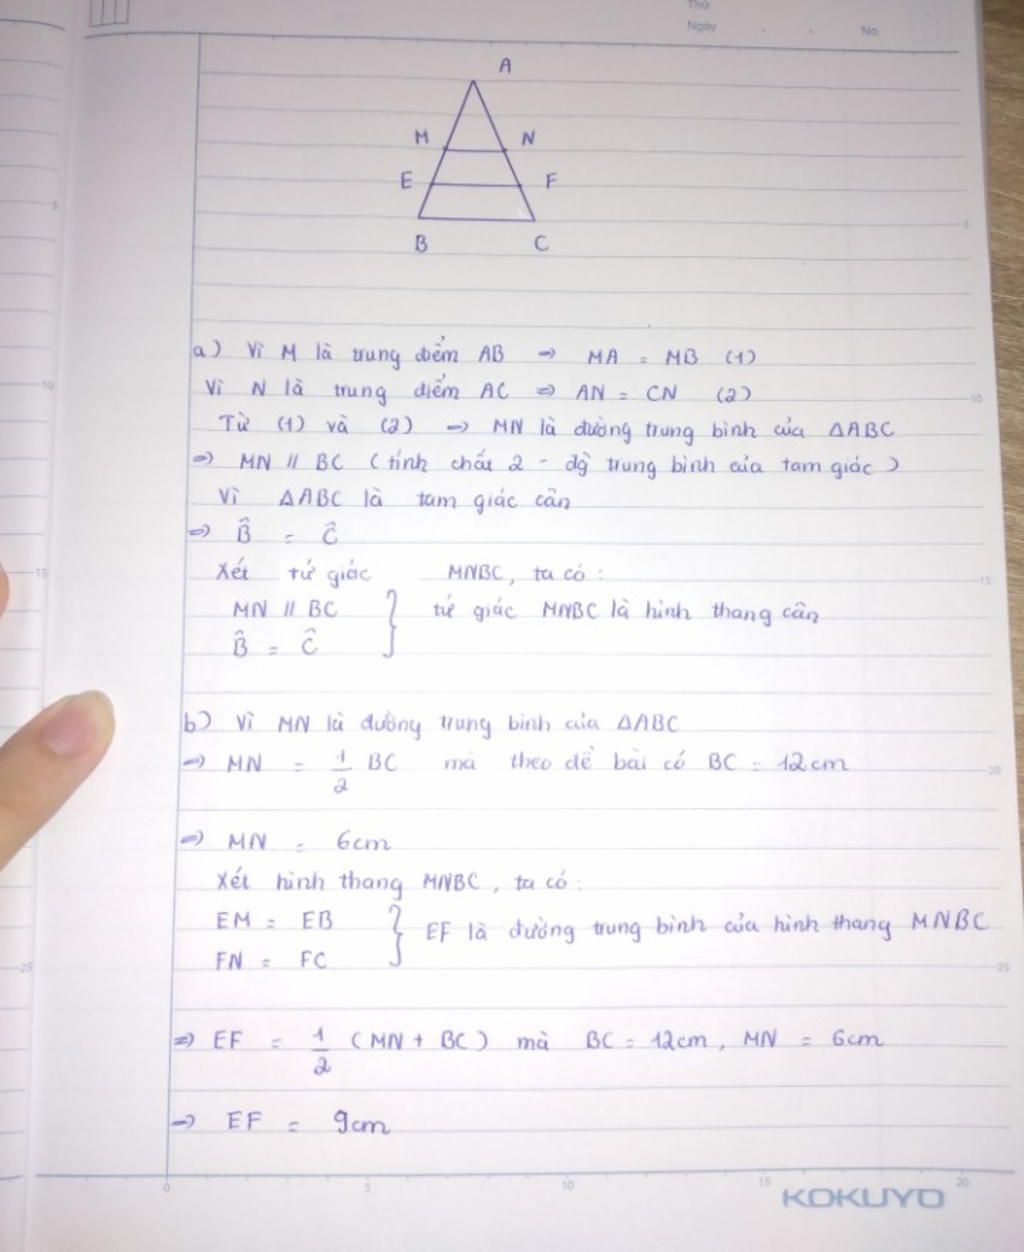 Thứ
Ngày
No.
A
M N
E F
B C
a) Vì M là trung điểm AB => MA = MB (1)
Vì N là trung điểm AC => AN = CN (2)
Từ (1) và (2) => MN là đường trung bình của ΔABC
=> MN // BC (tính chất 2 - đg̀ trung bình của tam giác)
Vì ΔABC là tam giác cân
=> B̂ = Ĉ
Xét tứ giác MNBC, ta có:
MN // BC } tứ giác MNBC là hình thang cân
B̂ = Ĉ
b) Vì MN là đường trung bình của ΔABC
=> MN = 1/2 BC mà theo đề bài có BC = 12cm
=> MN = 6cm
Xét hình thang MNBC, ta có:
EM = EB } EF là đường trung bình của hình thang MNBC
FN = FC
=> EF = 1/2 (MN + BC) mà BC = 12cm, MN = 6cm
=> EF = 9cm
0 5 10 15 20
KOKUYO
5
10
15
20
25
5
10
15
25